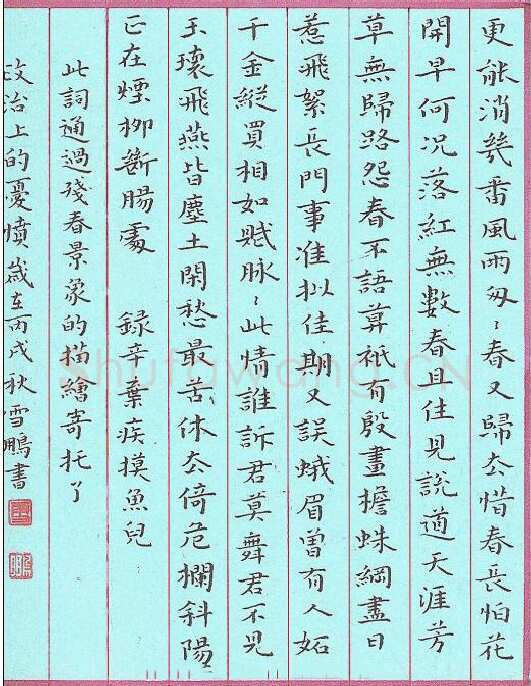 更能消幾番風雨匆〻春又歸去惜春長怕花
開早何況落紅無數春且住見說道天涯芳
草無歸路怨春不語算祇有殷畫檐蛛網盡日
惹飛絮長門事准拟佳期又誤蛾眉曾有人妬
千金縱買相如賦脉〻此情誰訴君莫舞君不見
玉環飛燕皆塵土閑愁最苦休去倚危欄斜陽
正在煙柳斷腸處 録辛棄疾摸魚兒
此詞通過殘春景象的描繪寄托了
政治上的憂憤歲在丙戌秋雪鵬書
Shufawang.CN